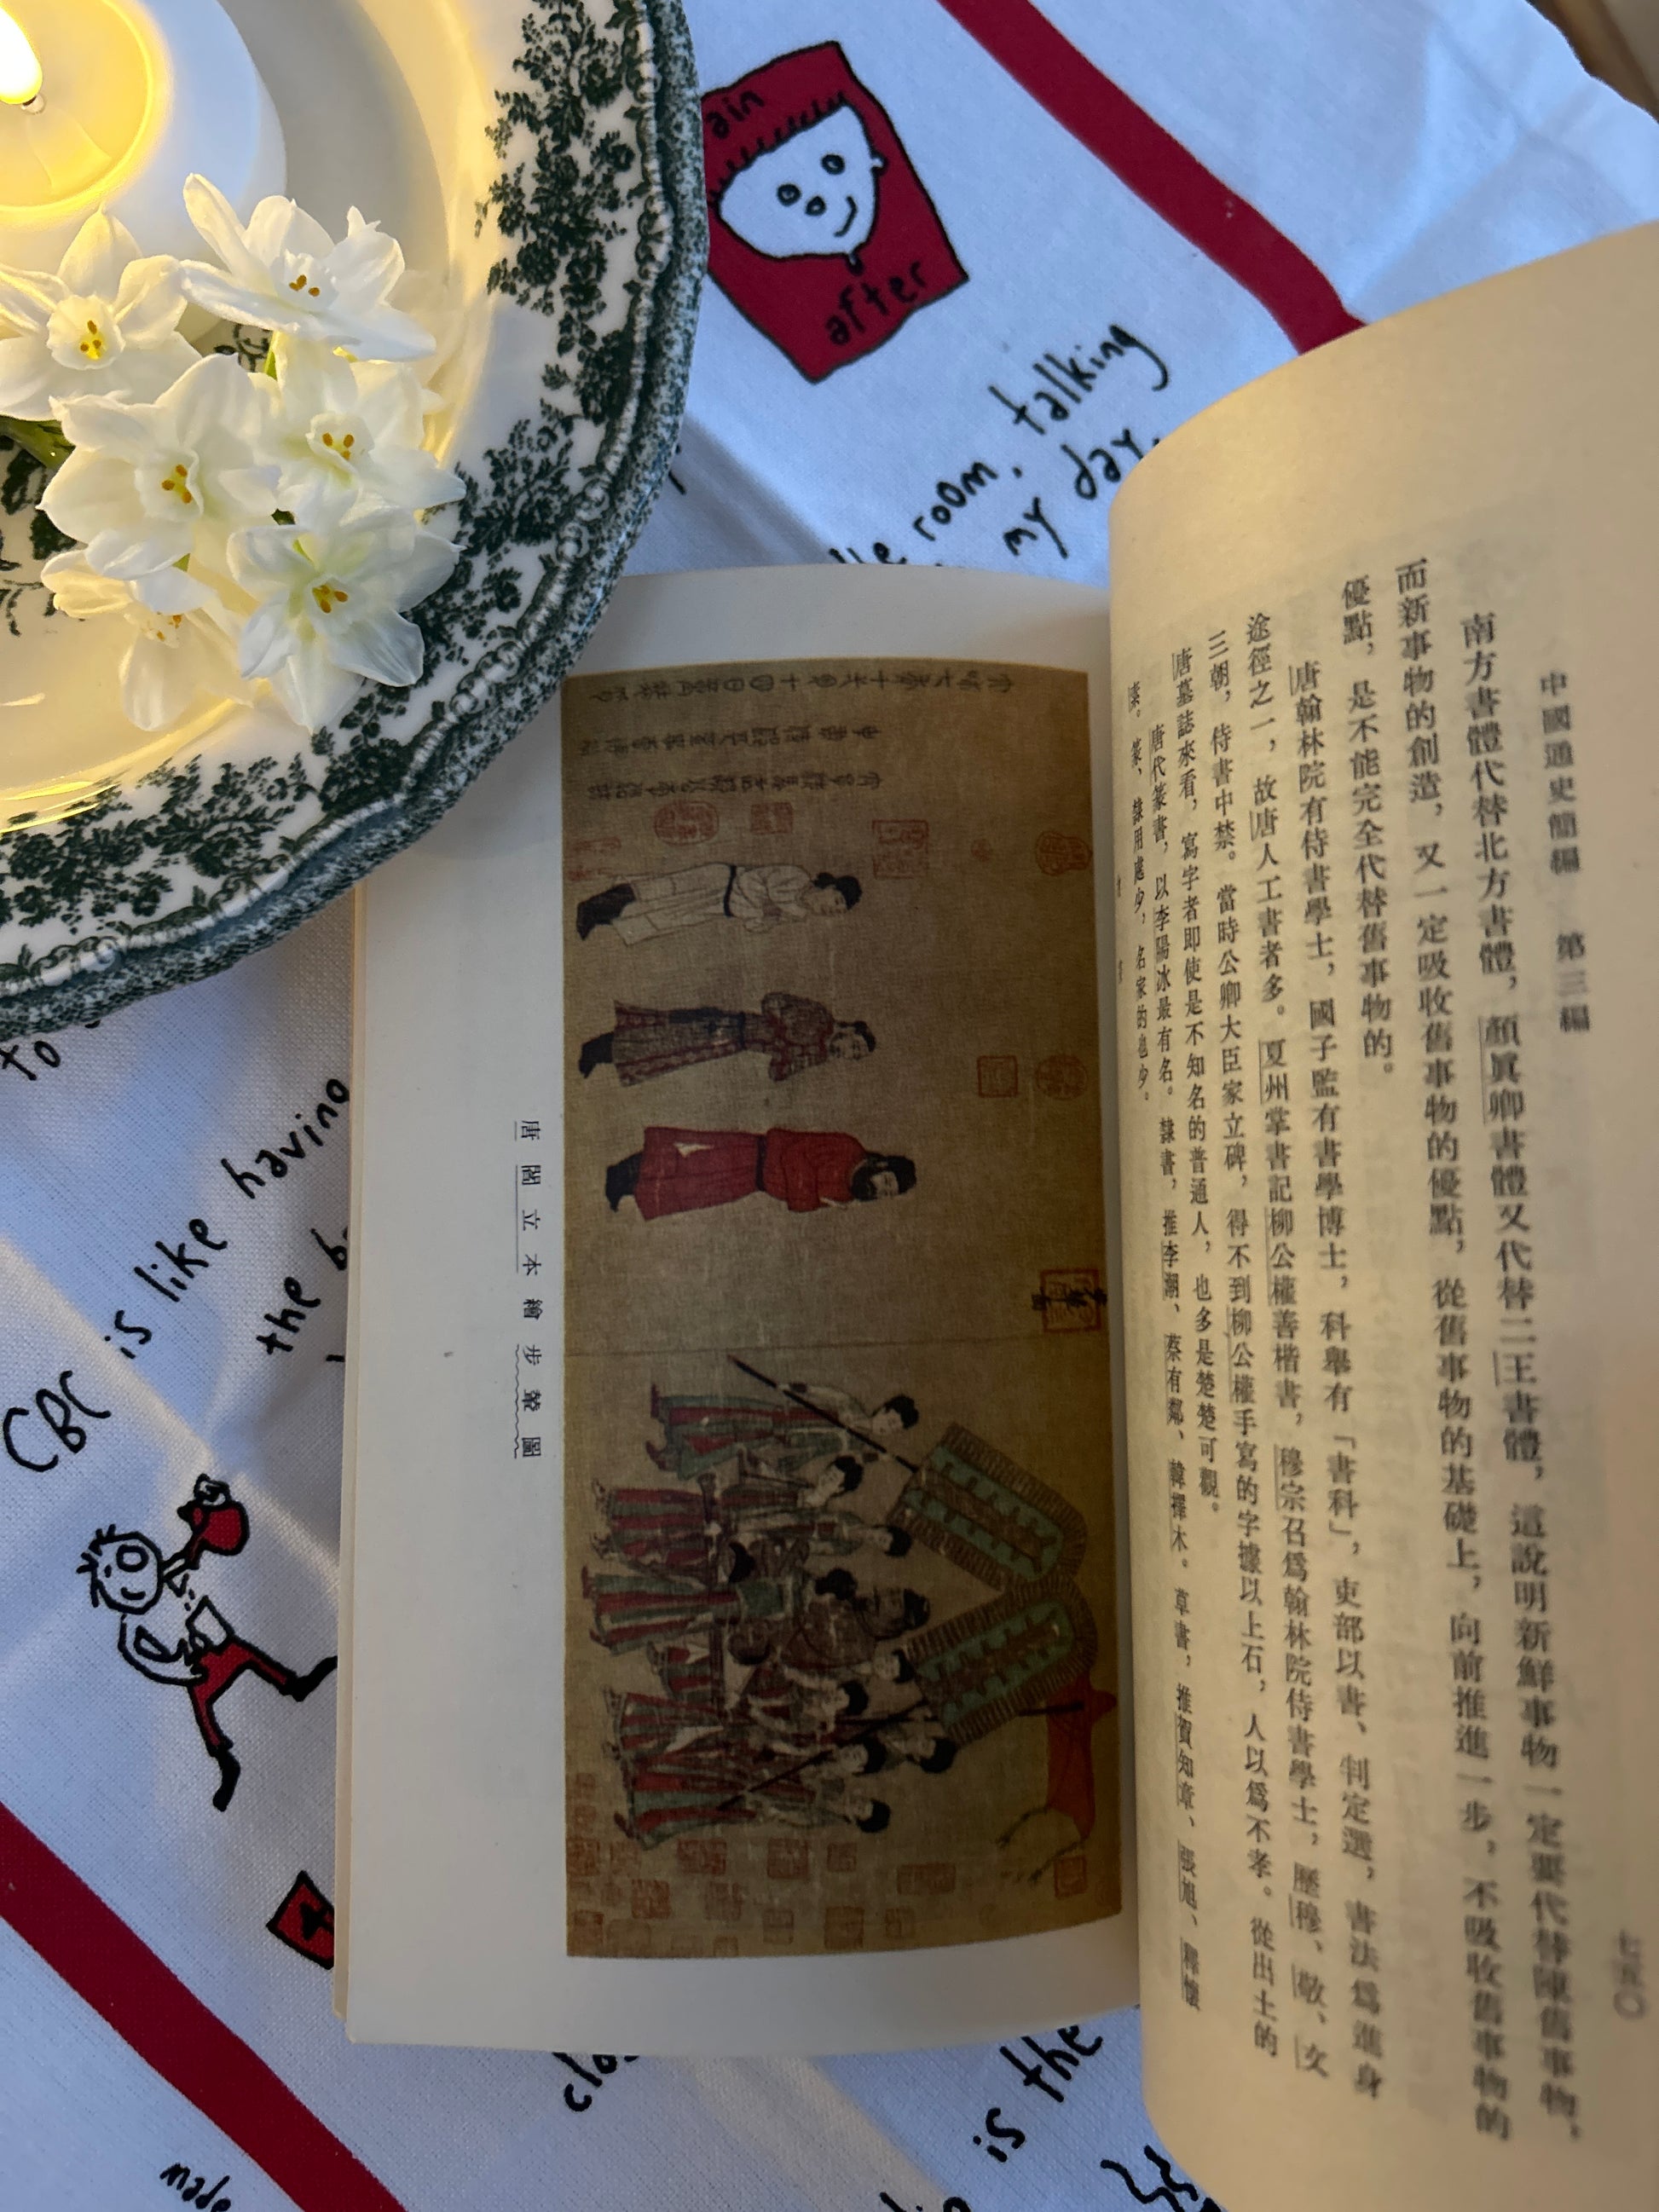 中國通史簡編　第三編
七五〇
南方書體代替北方書體，顏眞卿書體又代替二王書體，這說明新鮮事物一定要代替陳舊事物，
而新事物的創造，又一定吸收舊事物的優點，從舊事物的基礎上，向前推進一步，不吸收舊事物的
優點，是不能完全代替舊事物的。
唐翰林院有侍書學士，國子監有書學博士，科舉有「書科」，吏部以書、判定選，書法爲進身
途徑之一，故唐人工書者多。夏州掌書記柳公權善楷書，穆宗召爲翰林院侍書學士，歷穆、敬、文
三朝，侍書中禁。當時公卿大臣家立碑，得不到柳公權手寫的字據以上石，人以爲不孝。從出土的
唐墓誌來看，寫字者即使是不知名的普通人，也多是楚楚可觀。
唐代篆書，以李陽冰最有名。隸書，推李潮、蔡有鄰、韓擇木。草書，推賀知章、張旭、釋懷
素。篆、隸用處少，名家的也少。
唐閻立本繪步輦圖
ain
after
room, talking
my day.
to
is like having
the
CBC
is the
made